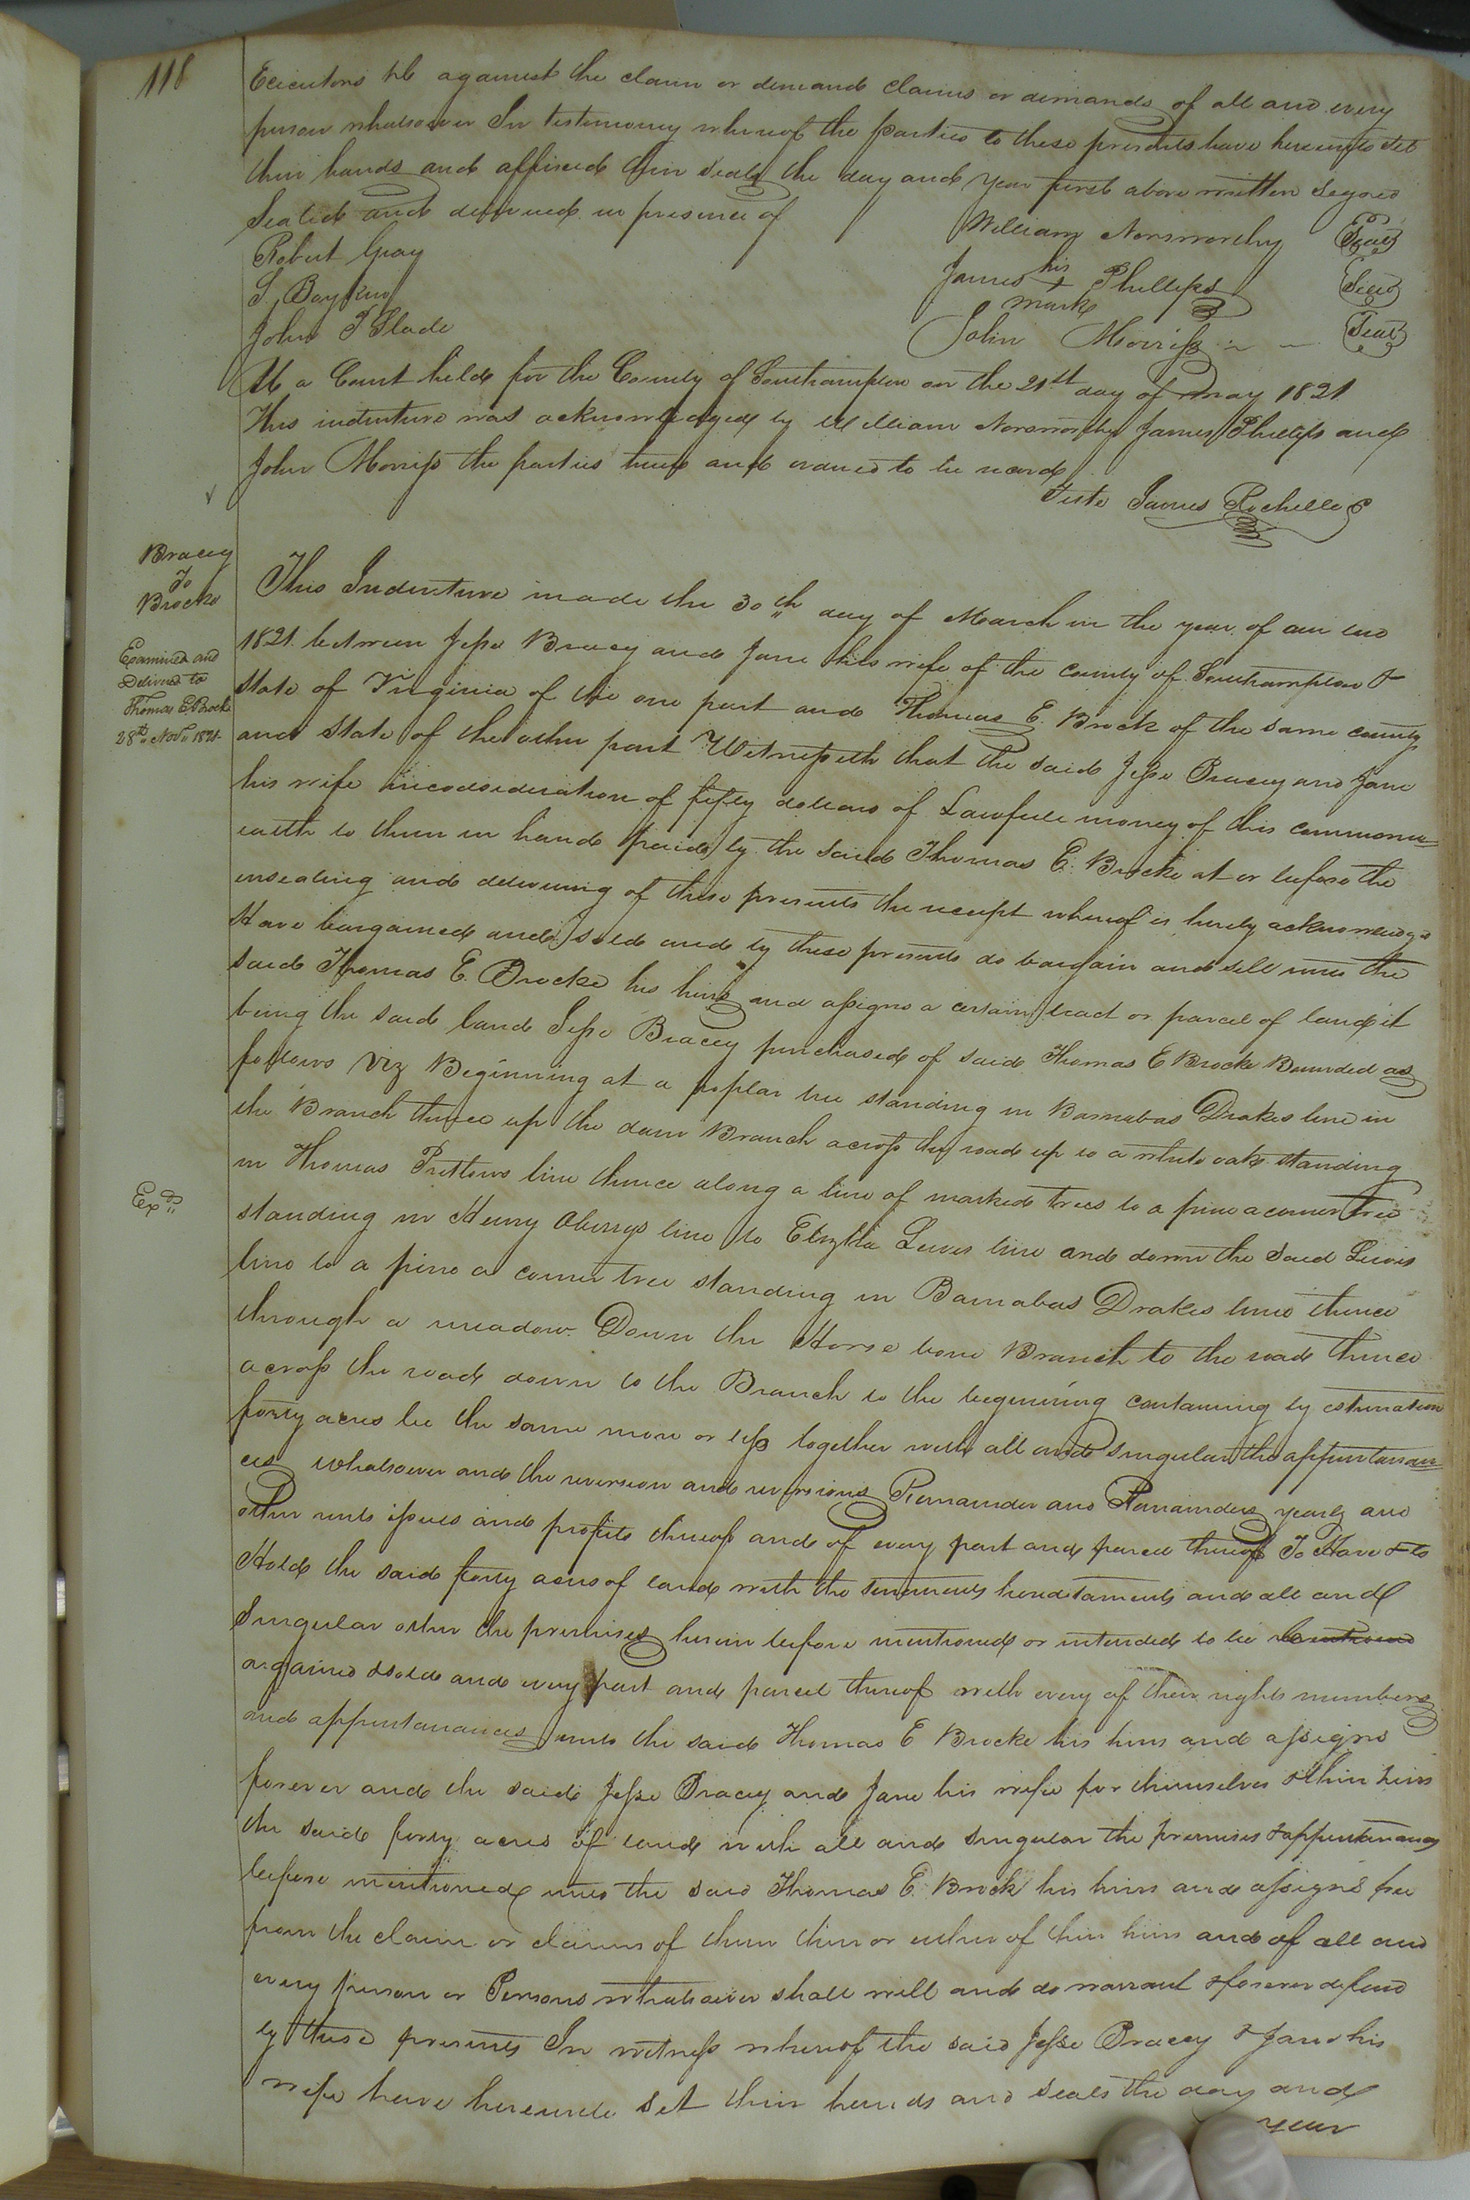 118
Executors &c against the claim or demand claims or demands of all and every
person whatsoever In testimony whereof the parties to these presents have hereunto set
their hands and affixed their seals the day and year first above written Signed
Sealed and delivered in presence of
William Norsworthy Seal
Robert Gray
James his + mark Phillips Seal
S. Boykin
John Morriss Seal
John T Slade
At a Court held for the County of Southampton on the 21st day of May 1821
This indenture was acknowledged by William Norsworthy James Phillips and
John Morriss the parties thereto and ordered to be record
Teste James Rochelle C
Bracey
To
Brocke
Examined and
Delivered to
Thomas E Brocke
28th Nov. 1821
This Indenture made the 30th day of March in the year of our lord
1821 between Jesse Bracey and Jane his wife of the county of Southampton &
State of Virginia of the one part and Thomas E. Brock of the same county
and State of the other part Witnesseth that the said Jesse Bracey and Jane
his wife in consideration of fifty dollars of Lawfull money of this commonw=
ealth to them in hand paid by the said Thomas E. Brocke at or before the
ensealing and delivering of these presents the receipt whereof is hereby acknowledg=
Have bargained and sold and by these presents do bargain and sell unto the
said Thomas E. Brocke his heirs and assigns a certain tract or parcel of land it
being the said land Jesse Bracey purchased of said Thomas E Brocke Bounded as
follows Viz Beginning at a poplar tree standing in Barnabas Drakes line in
the Branch thence up the dam Branch across the road up to a white oak standing
in Thomas Pretlows line thence along a line of marked trees to a pine a corner tree
Exd
standing in Henry line to Lewis line and down the said Lewis
line to a pine a corner tree standing in Barnabas Drakes line thence
through a meadow Down the Horse bone Branch to the road thence
across the road down to the Branch to the beginning containing by estimation
forty acres be the same more or less together with all and singular the appurtenan=
ces whatsoever and the reversion and reversions Remainder and Remainders yearly and
other rents issues and profits thereof and of every part and parcel thereof To Have & to
Hold the said forty acres of land with the tenements hereditaments and all and
Singular other the premises herein before mentioned or intended to be
argained & sold and every part and parcel thereof with every of their rights members
and appurtanances unto the said Thomas E Brocke his heirs and assigns
forever and the said Jesse Bracey and Jane his wife for themselves & their heirs
the said forty acres of land with all and singular the premises & appurtenances
before mentioned unto the said Thomas E. Brock his heirs and assigns free
from the claim or claims of them them or either of their heirs and of all and
every person or Persons whatsoever shall will and do warrant & forever defend
by these presents In witness whereof the said Jesse Bracey & Jane his
wife have hereunto set their hands and seals the day and
year